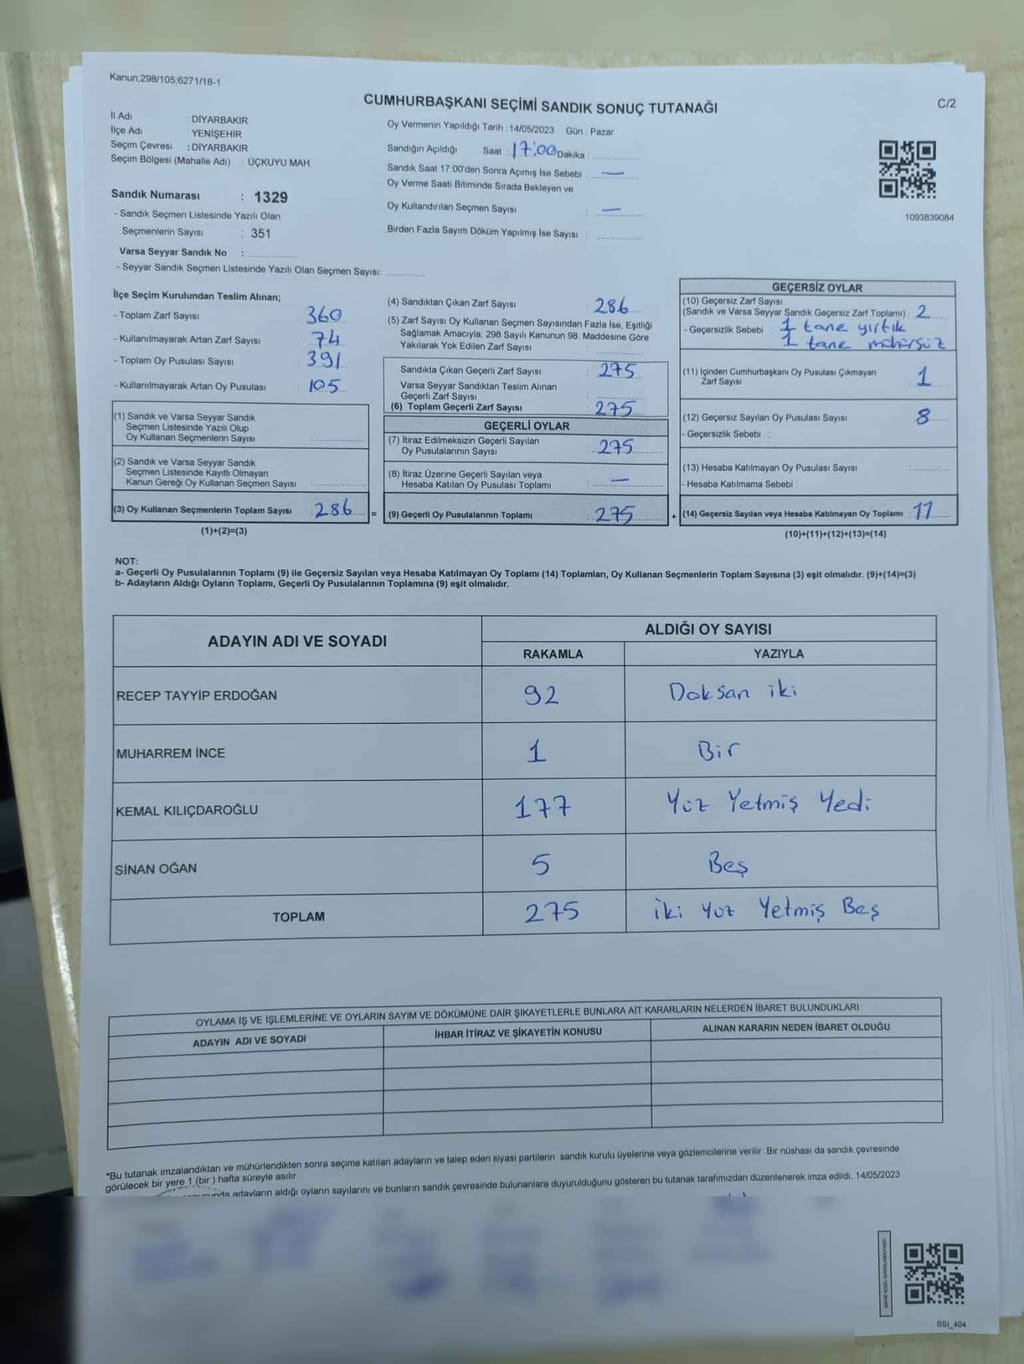 Kanun;298/105;6271/18-1
CUMHURBAŞKANI SEÇİMİ SANDIK SONUÇ TUTANAĞI
C/2
İl Adı : DİYARBAKIR
İlçe Adı : YENİŞEHİR
Seçim Çevresi : DİYARBAKIR
Seçim Bölgesi (Mahalle Adı) : ÜÇKUYU MAH.
Sandık Numarası : 1329
- Sandık Seçmen Listesinde Yazılı Olan
Seçmenlerin Sayısı : 351
Varsa Seyyar Sandık No :
- Seyyar Sandık Seçmen Listesinde Yazılı Olan Seçmen Sayısı:
Oy Vermenin Yapıldığı Tarih : 14/05/2023 Gün : Pazar
Sandığın Açıldığı Saat : 17:00 Dakika :
Sandık Saat 17:00'den Sonra Açımış İse Sebebi : —
Oy Verme Saati Bitiminde Sırada Bekleyen ve
Oy Kullandırılan Seçmen Sayısı : —
Birden Fazla Sayım Döküm Yapılmış İse Sayısı :
1093839084
İlçe Seçim Kurulundan Teslim Alınan;
- Toplam Zarf Sayısı : 360
- Kullanılmayarak Artan Zarf Sayısı : 74
- Toplam Oy Pusulası Sayısı : 391
- Kullanılmayarak Artan Oy Pusulası : 105
(1) Sandık ve Varsa Seyyar Sandık
Seçmen Listesinde Yazılı Olup
Oy Kullanan Seçmenlerin Sayısı :
(2) Sandık ve Varsa Seyyar Sandık
Seçmen Listesinde Kayıtlı Olmayan
Kanun Gereği Oy Kullanan Seçmen Sayısı :
(3) Oy Kullanan Seçmenlerin Toplam Sayısı : 286 =
(1)+(2)=(3)
(4) Sandıktan Çıkan Zarf Sayısı : 286
(5) Zarf Sayısı Oy Kullanan Seçmen Sayısından Fazla İse, Eşitliği
Sağlamak Amacıyla, 298 Sayılı Kanunun 98. Maddesine Göre
Yakılarak Yok Edilen Zarf Sayısı :
Sandıkta Çıkan Geçerli Zarf Sayısı : 275
Varsa Seyyar Sandıktan Teslim Alınan
Geçerli Zarf Sayısı :
(6) Toplam Geçerli Zarf Sayısı : 275
GEÇERLİ OYLAR
(7) İtiraz Edilmeksizin Geçerli Sayılan
Oy Pusulalarının Sayısı : 275
(8) İtiraz Üzerine Geçerli Sayılan veya
Hesaba Katılan Oy Pusulası Toplamı : —
(9) Geçerli Oy Pusulalarının Toplamı : 275 +
GEÇERSİZ OYLAR
(10) Geçersiz Zarf Sayısı
(Sandık ve Varsa Seyyar Sandık Geçersiz Zarf Toplamı) : 2
- Geçersizlik Sebebi : 1 tane yırtık
1 tane mühürsüz
(11) İçinden Cumhurbaşkanı Oy Pusulası Çıkmayan
Zarf Sayısı : 1
(12) Geçersiz Sayılan Oy Pusulası Sayısı : 8
- Geçersizlik Sebebi :
(13) Hesaba Katılmayan Oy Pusulası Sayısı :
- Hesaba Katılmama Sebebi :
(14) Geçersiz Sayılan veya Hesaba Katılmayan Oy Toplamı : 11
(10)+(11)+(12)+(13)=(14)
NOT:
a- Geçerli Oy Pusulalarının Toplamı (9) ile Geçersiz Sayılan veya Hesaba Katılmayan Oy Toplamı (14) Toplamları, Oy Kullanan Seçmenlerin Toplam Sayısına (3) eşit olmalıdır. (9)+(14)=(3)
b- Adayların Aldığı Oyların Toplamı, Geçerli Oy Pusulalarının Toplamına (9) eşit olmalıdır.
ADAYIN ADI VE SOYADI ALDIĞI OY SAYISI
RAKAMLA YAZIYLA
RECEP TAYYİP ERDOĞAN 92 Doksan iki
MUHARREM İNCE 1 Bir
KEMAL KILIÇDAROĞLU 177 Yüz Yetmiş Yedi
SİNAN OĞAN 5 Beş
TOPLAM 275 iki Yüz Yetmiş Beş
OYLAMA İŞ VE İŞLEMLERİNE VE OYLARIN SAYIM VE DÖKÜMÜNE DAİR ŞİKAYETLERLE BUNLARA AİT KARARLARIN NELERDEN İBARET BULUNDUKLARI
ADAYIN ADI VE SOYADI İHBAR İTİRAZ VE ŞİKAYETİN KONUSU ALINAN KARARIN NEDEN İBARET OLDUĞU
*Bu tutanak imzalandıktan ve mühürlendikten sonra seçime katılan adayların ve talep eden siyasi partilerin sandık kurulu üyelerine veya gözlemcilerine verilir. Bir nüshası da sandık çevresinde
görülecek bir yere 1 (bir) hafta süreyle asılır.
adayların aldığı oyların sayılarını ve bunların sandık çevresinde bulunanlara duyurulduğunu gösteren bu tutanak tarafımızdan düzenlenerek imza edildi. 14/05/2023
SSI_404